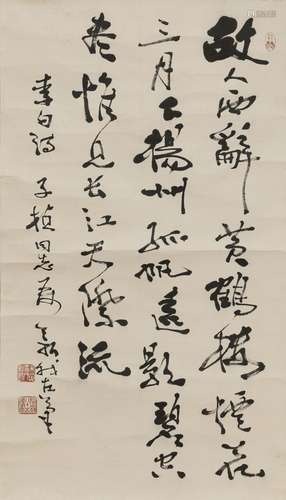 故人西辭黄鶴楼煙花
三月下揚州孤帆遠影碧空
盡惟見長江天際流
李白詩 子楨同志属